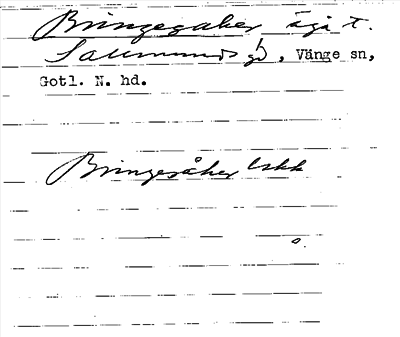 Bringesaker äga t.
Sallmunds gd, Vänge sn,
Gotl. N. hd.
Bringesåker Lskk